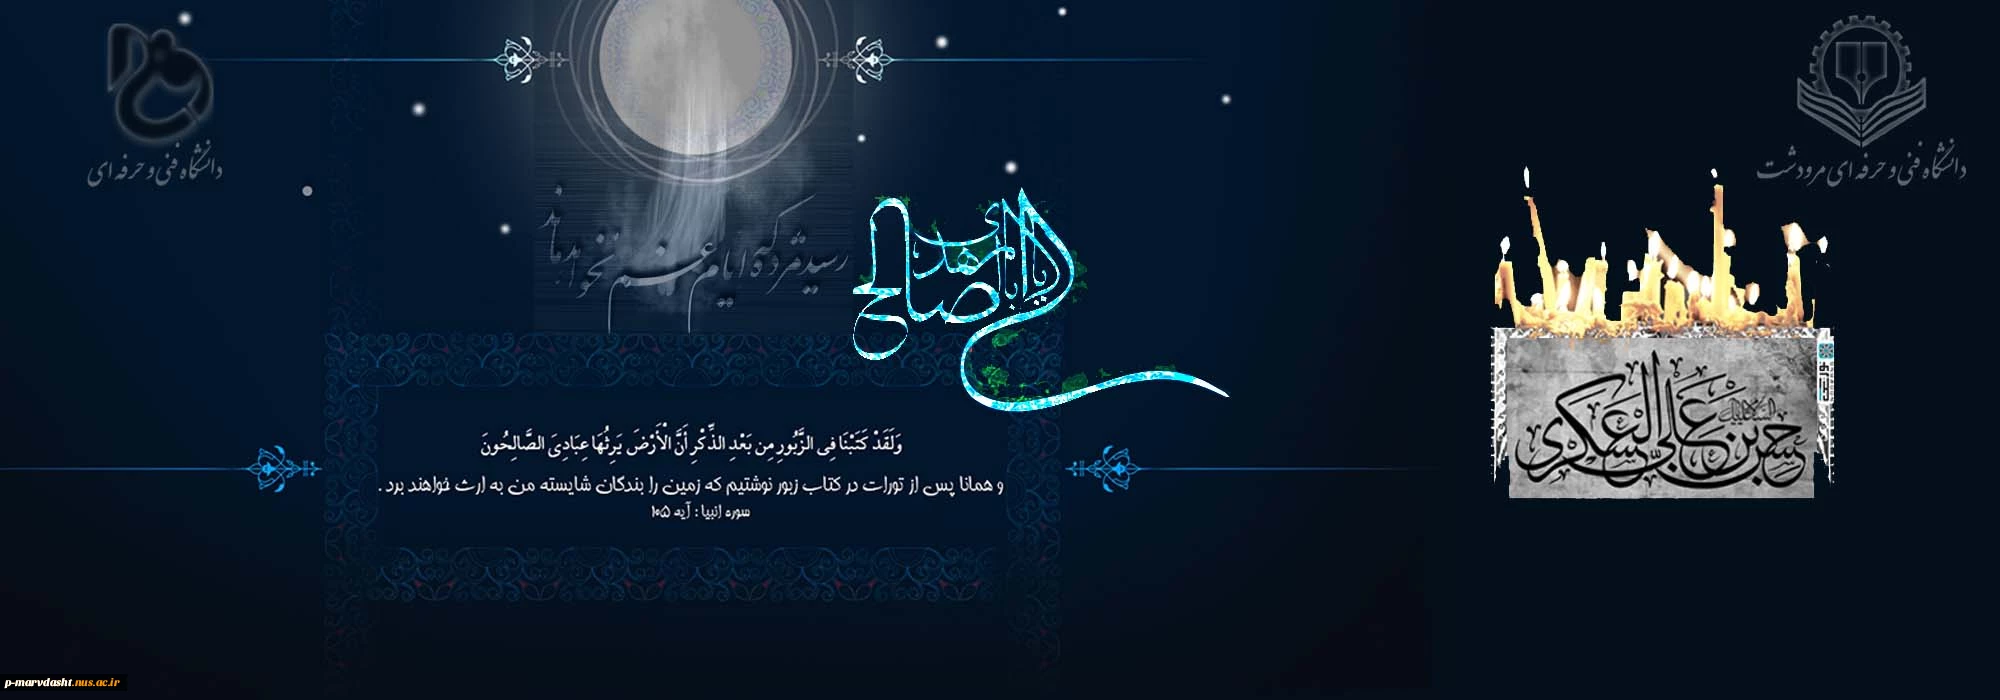 دانشگاه فنی و حرفه ای
دانشگاه فنی و حرفه ای مرودشت
رسید مژده که ایام غم نخواهد ماند
یا اباصالح المهدی
وَلَقَدْ كَتَبْنَا فِی الزَّبُورِ مِن بَعْدِ الذِّكْرِ أَنَّ الْأَرْضَ یَرِثُهَا عِبَادِیَ الصَّالِحُونَ
و همانا پس از تورات در کتاب زبور نوشتیم که زمین را بندگان شایسته من به ارث خواهند برد .
سوره انبیا : آیه ۱۰۵
حسن بن علی العسکری
p-marvdasht.nus.ac.ir